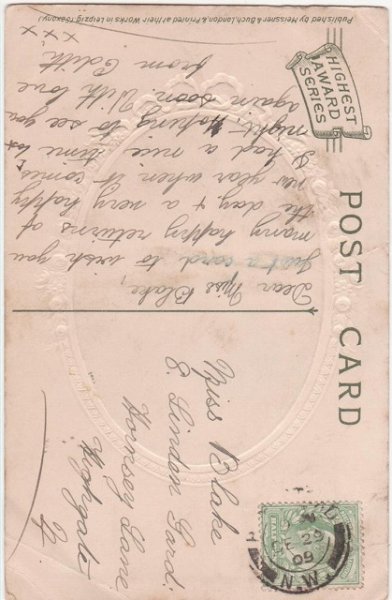 Published by Meissner & Buch, London, & Printed at their Works in Leipzig (Saxony.)
HIGHEST
AWARD
SERIES
POST CARD
Dear Miss Blake,
Just a card to wish you
many happy returns of
the day & a very happy
new year when it comes.
I had a nice time last
night. Hoping to see you
again soon. With love
from Edith
xxx
Miss Blake
8. Lindon Gard.
Hornsey Lane
Highgate
N.
DE 29
09
N.W.